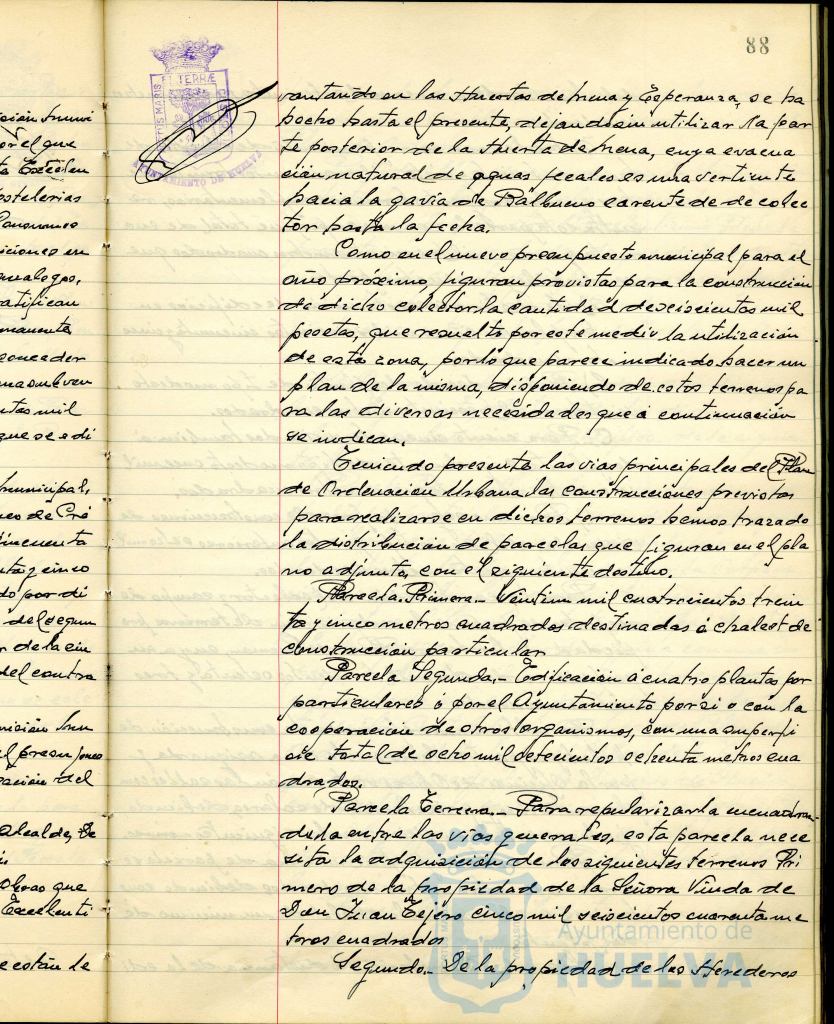 88
PORTUS MARIS ET TERRÆ
AYUNTAMIENTO DE HUELVA
vantando en las Huertas de Mena y Esperanza, se ha
hecho hasta el presente, dejando sin utilizar la par
te posterior de la Huerta de Mena, cuya evacua
ción natural de aguas fecales es una vertiente
hacia la gavia de Balbueno carente de de colec
tor hasta la fecha.
Como en el nuevo presupuesto municipal para el
año próximo, figuran previstas para la construcción
de dicho colector la cantidad de seiscientas mil
pesetas, que resuelto por este medio la utilización
de esta zona, por lo que parece indicado hacer un
plan de la misma, disponiendo de estos terrenos pa
ra las diversas necesidades que a continuación
se indican.
Teniendo presente las vias principales del Plan
de Ordenación Urbana, las construcciones previstas
para realizarse en dichos terrenos hemos trazado
la distribución de parcelas que figuran en el pla
no adjunto, con el siguiente destino.
Parcela. Primera.- Veintiun mil cuatrocientos trein
ta y cinco metros cuadrados destinadas á chalest de
construcción particular
Parcela Segunda.- Edificación á cuatro plantas por
particulares ó por el Ayuntamiento por si o con la
cooperación de otros organismos, con una superfi
cie total de ocho mil setecientos ochenta metros cua
drados.
Parcela Tercera.- Para regularizar la
da la entre las vias generales, esta parcela nece
sita la adquisición de los siguientes terrenos Pri
mero de la propiedad de la Señora Viuda de
Don Juan Tejero cinco mil seiscientos cuarenta me
tros cuadrados
Segundo.- De la propiedad de los Herederos
Ayuntamiento de
HUELVA